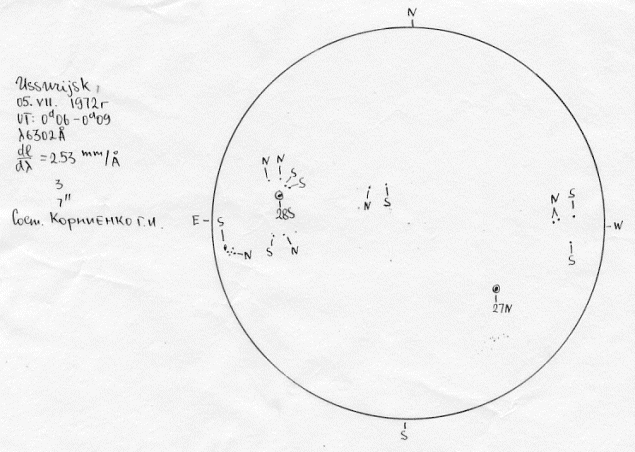 Ussurijsk,
05.VII. 1972г
UT: 0ᵈ06 - 0ᵈ09
λ6302Å
dl/dλ = 2.53 mm/Å
3
7"
Сост. Корниенко Г.И.
N
N N S
S
28S
S N
E
S
N
N S
N S
S
W
27N
S